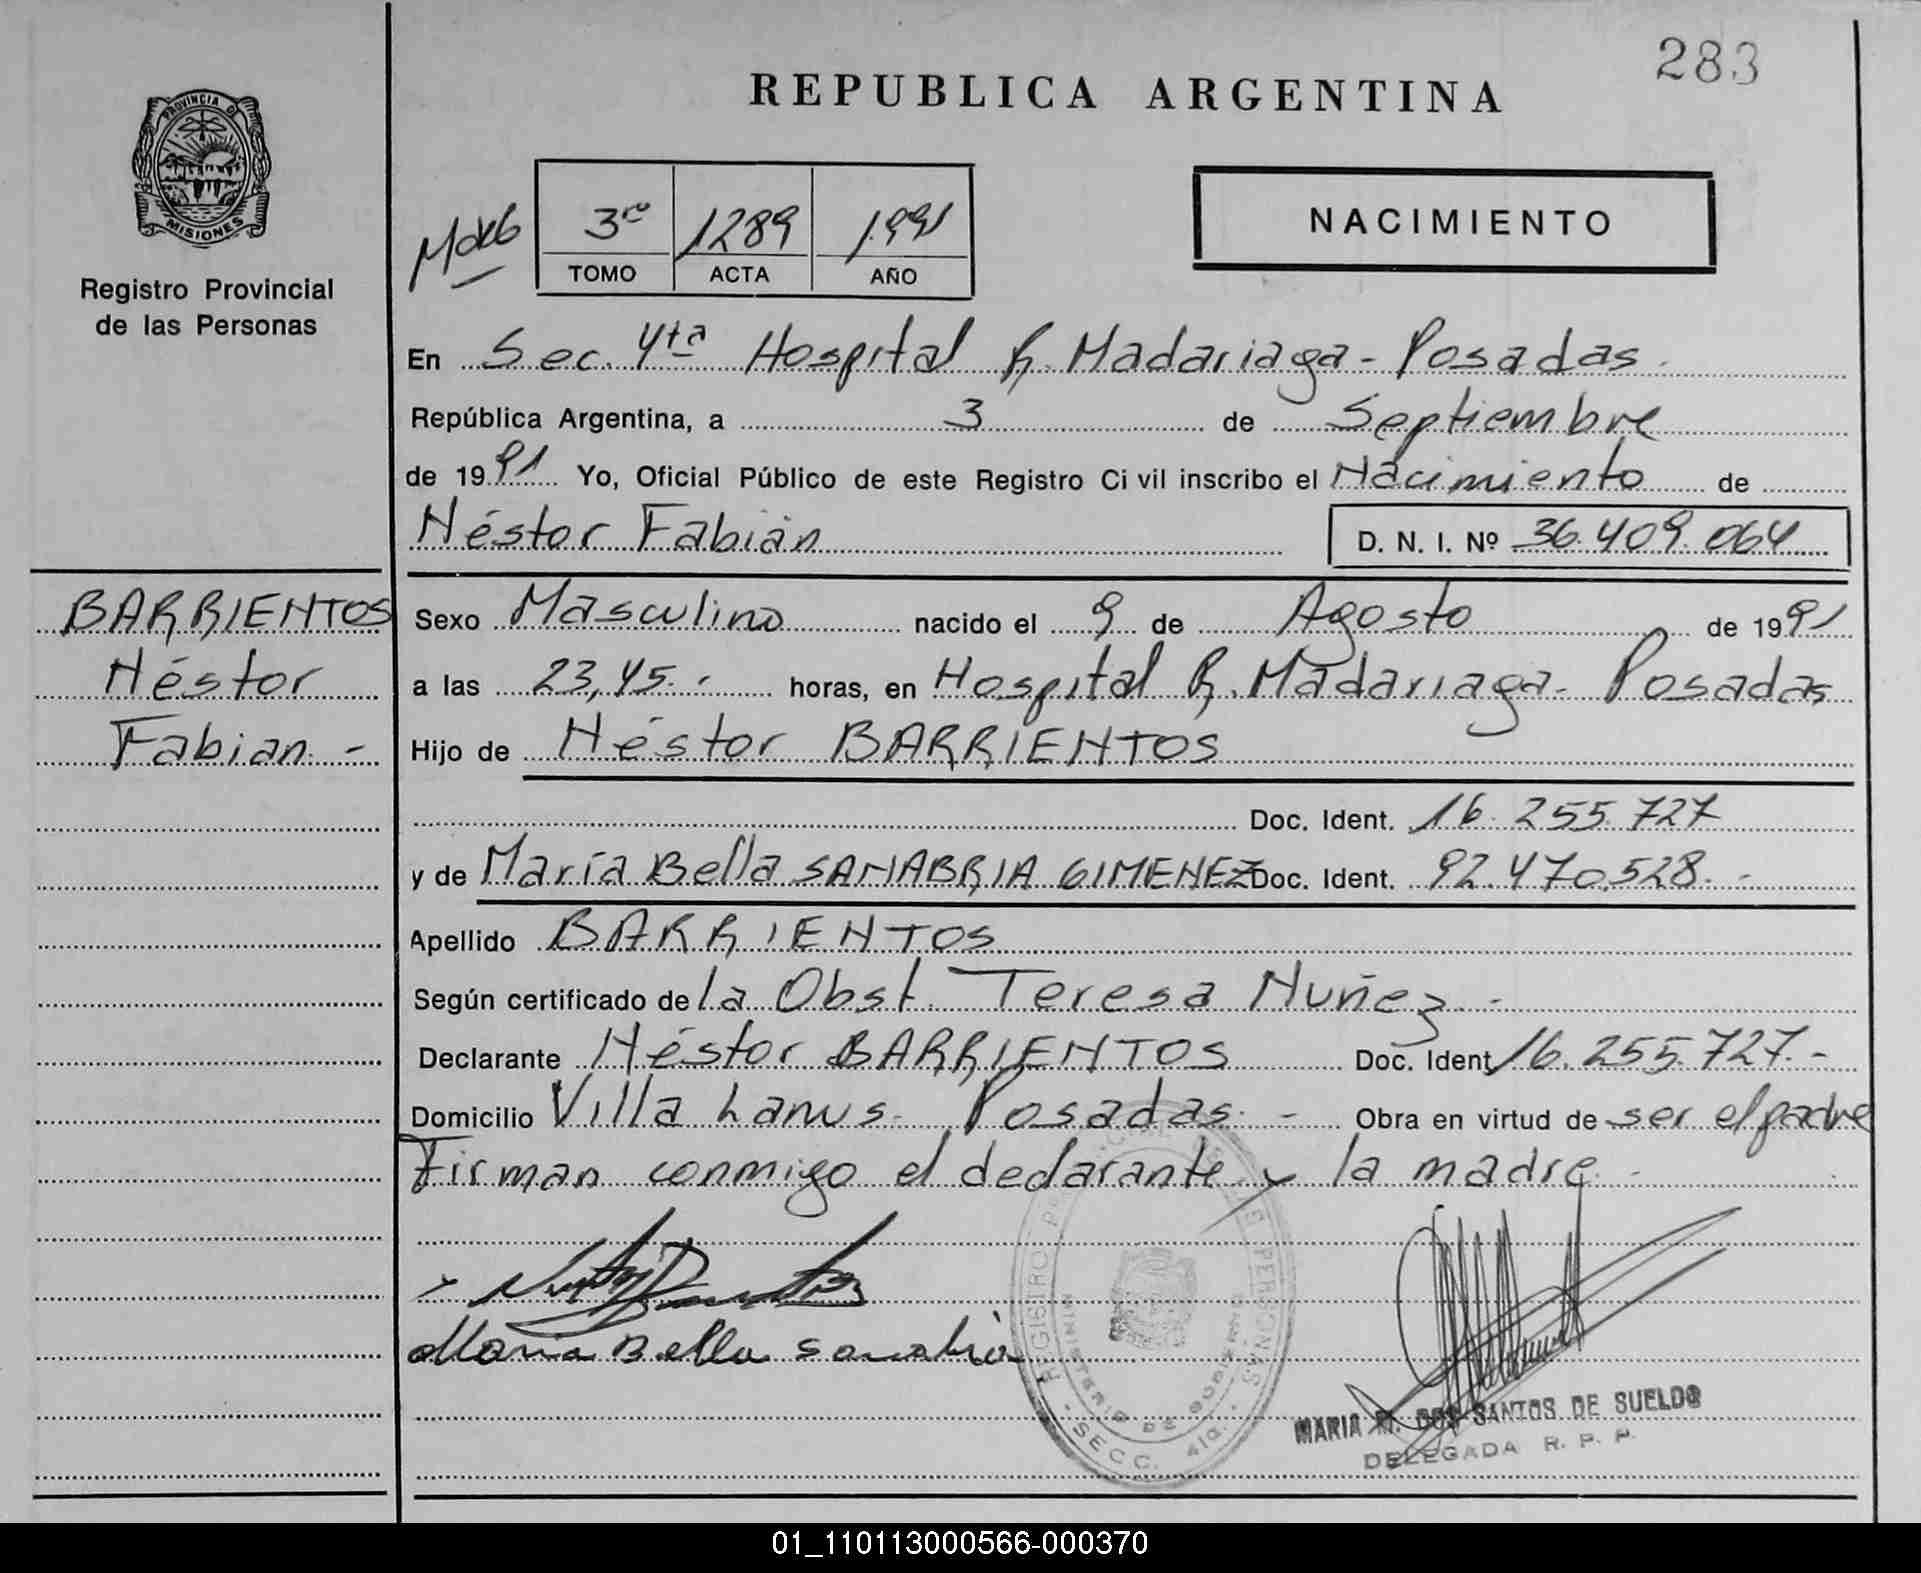 283
REPUBLICA ARGENTINA
PROVINCIA DE
MISIONES
Registro Provincial
de las Personas
3ro 1289 1.991
TOMO ACTA AÑO
NACIMIENTO
En Sec. 4ta Hospital R. Madariaga - Posadas.
República Argentina, a 3 de Septiembre
de 1991 Yo, Oficial Público de este Registro Ci vil inscribo el Nacimiento de
Néstor Fabián
D. N. I. Nº 36.409.064
BARRIENTOS
Néstor
Fabian. -
Sexo Masculino nacido el 9 de Agosto de 1991
a las 23,45. - horas, en Hospital R. Madariaga - Posadas
Hijo de Néstor BARRIENTOS
Doc. Ident. 16.255.727
y de María Bella SANABRIA GIMENEZ Doc. Ident. 92.470.528. -
Apellido BARRIENTOS
Según certificado de la Obst. Teresa Nuñez -
Declarante Néstor BARRIENTOS Doc. Ident. 16.255.727. -
Domicilio Villa Lanus - Posadas. - Obra en virtud de ser el padre
Firman conmigo el declarante y la madre. -
Maria Bella Sanabria
REGISTRO DE LAS PERSONAS
MINISTERIO DE GOBIERNO
- SECC. 4ta. -
MARIA M. DOS SANTOS DE SUELDO
DELEGADA R. P. P.
01_110113000566-000370